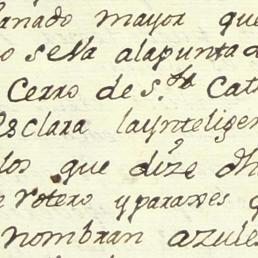 anado mayor que
o se va alapunta d
Cerro de s.ta Cat
esclara laynteligen
los que dize dh
e rotero yparaxes q
nombran azules